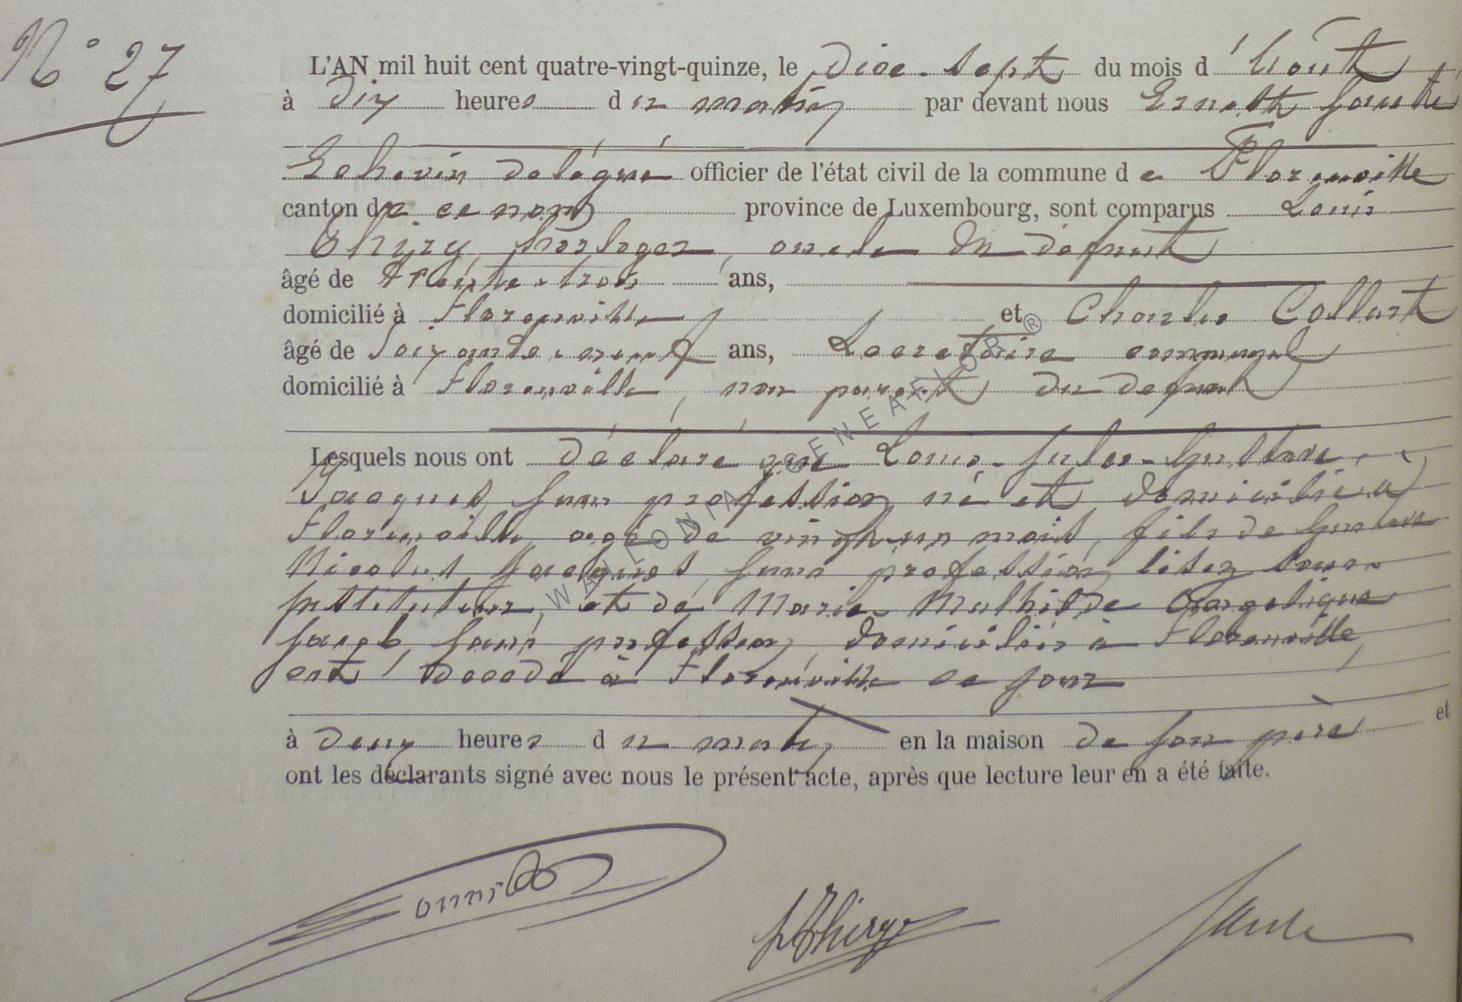 N° 27
L'AN mil huit cent quatre-vingt-quinze, le dix-sept du mois d'Août
à dix heures du matin par devant nous Ernest
Echevin délégué officier de l'état civil de la commune de Florenville
canton de ce nom province de Luxembourg, sont comparus Louis
Thiry, horloger, oncle du défunt
âgé de trente-trois ans,
domicilié à Florenville et Charles Collart
âgé de soixante-neuf ans, Secrétaire communal
domicilié à Florenville, non parent du defunt
Lesquels nous ont déclaré que Louis-Jules-Gustave
Jacques, sans profession né et domicilié à
Florenville, agé de vingt-un mois, fils de
Nicolas Jacques, sans profession, lisez sous-
instituteur, et de Marie-Mathilde Angelique
Jacob, sans profession, domiciliés à Florenville,
est décédé à Florenville ce jour
à deux heures du matin en la maison de son père et
ont les déclarants signé avec nous le présent acte, après que lecture leur en a été faite.
L Thiry
WALLONIA GENEAFLOR ®